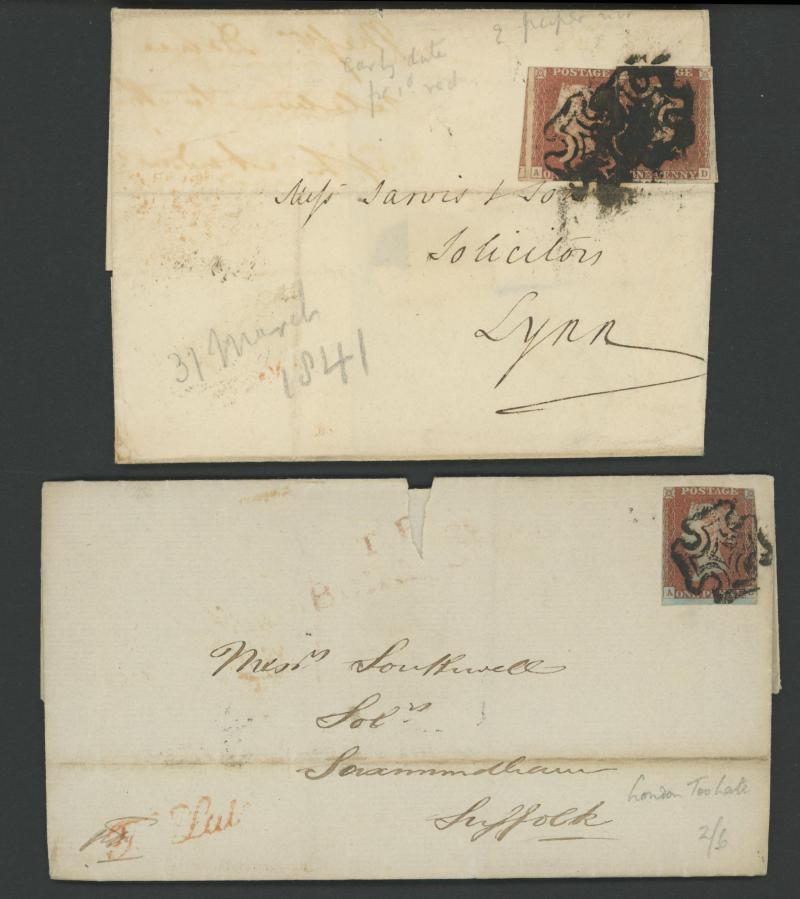 early date
pr 1d red
2 paper
POSTAGE
A
NE PENNY D
Messrs Jarvis & So
Solicitors
Lynn
31 March
1841
POSTAGE
A ONE P
Messrs Southwell
Solrs
Saxmundham
Suffolk
London Too Late
2/6